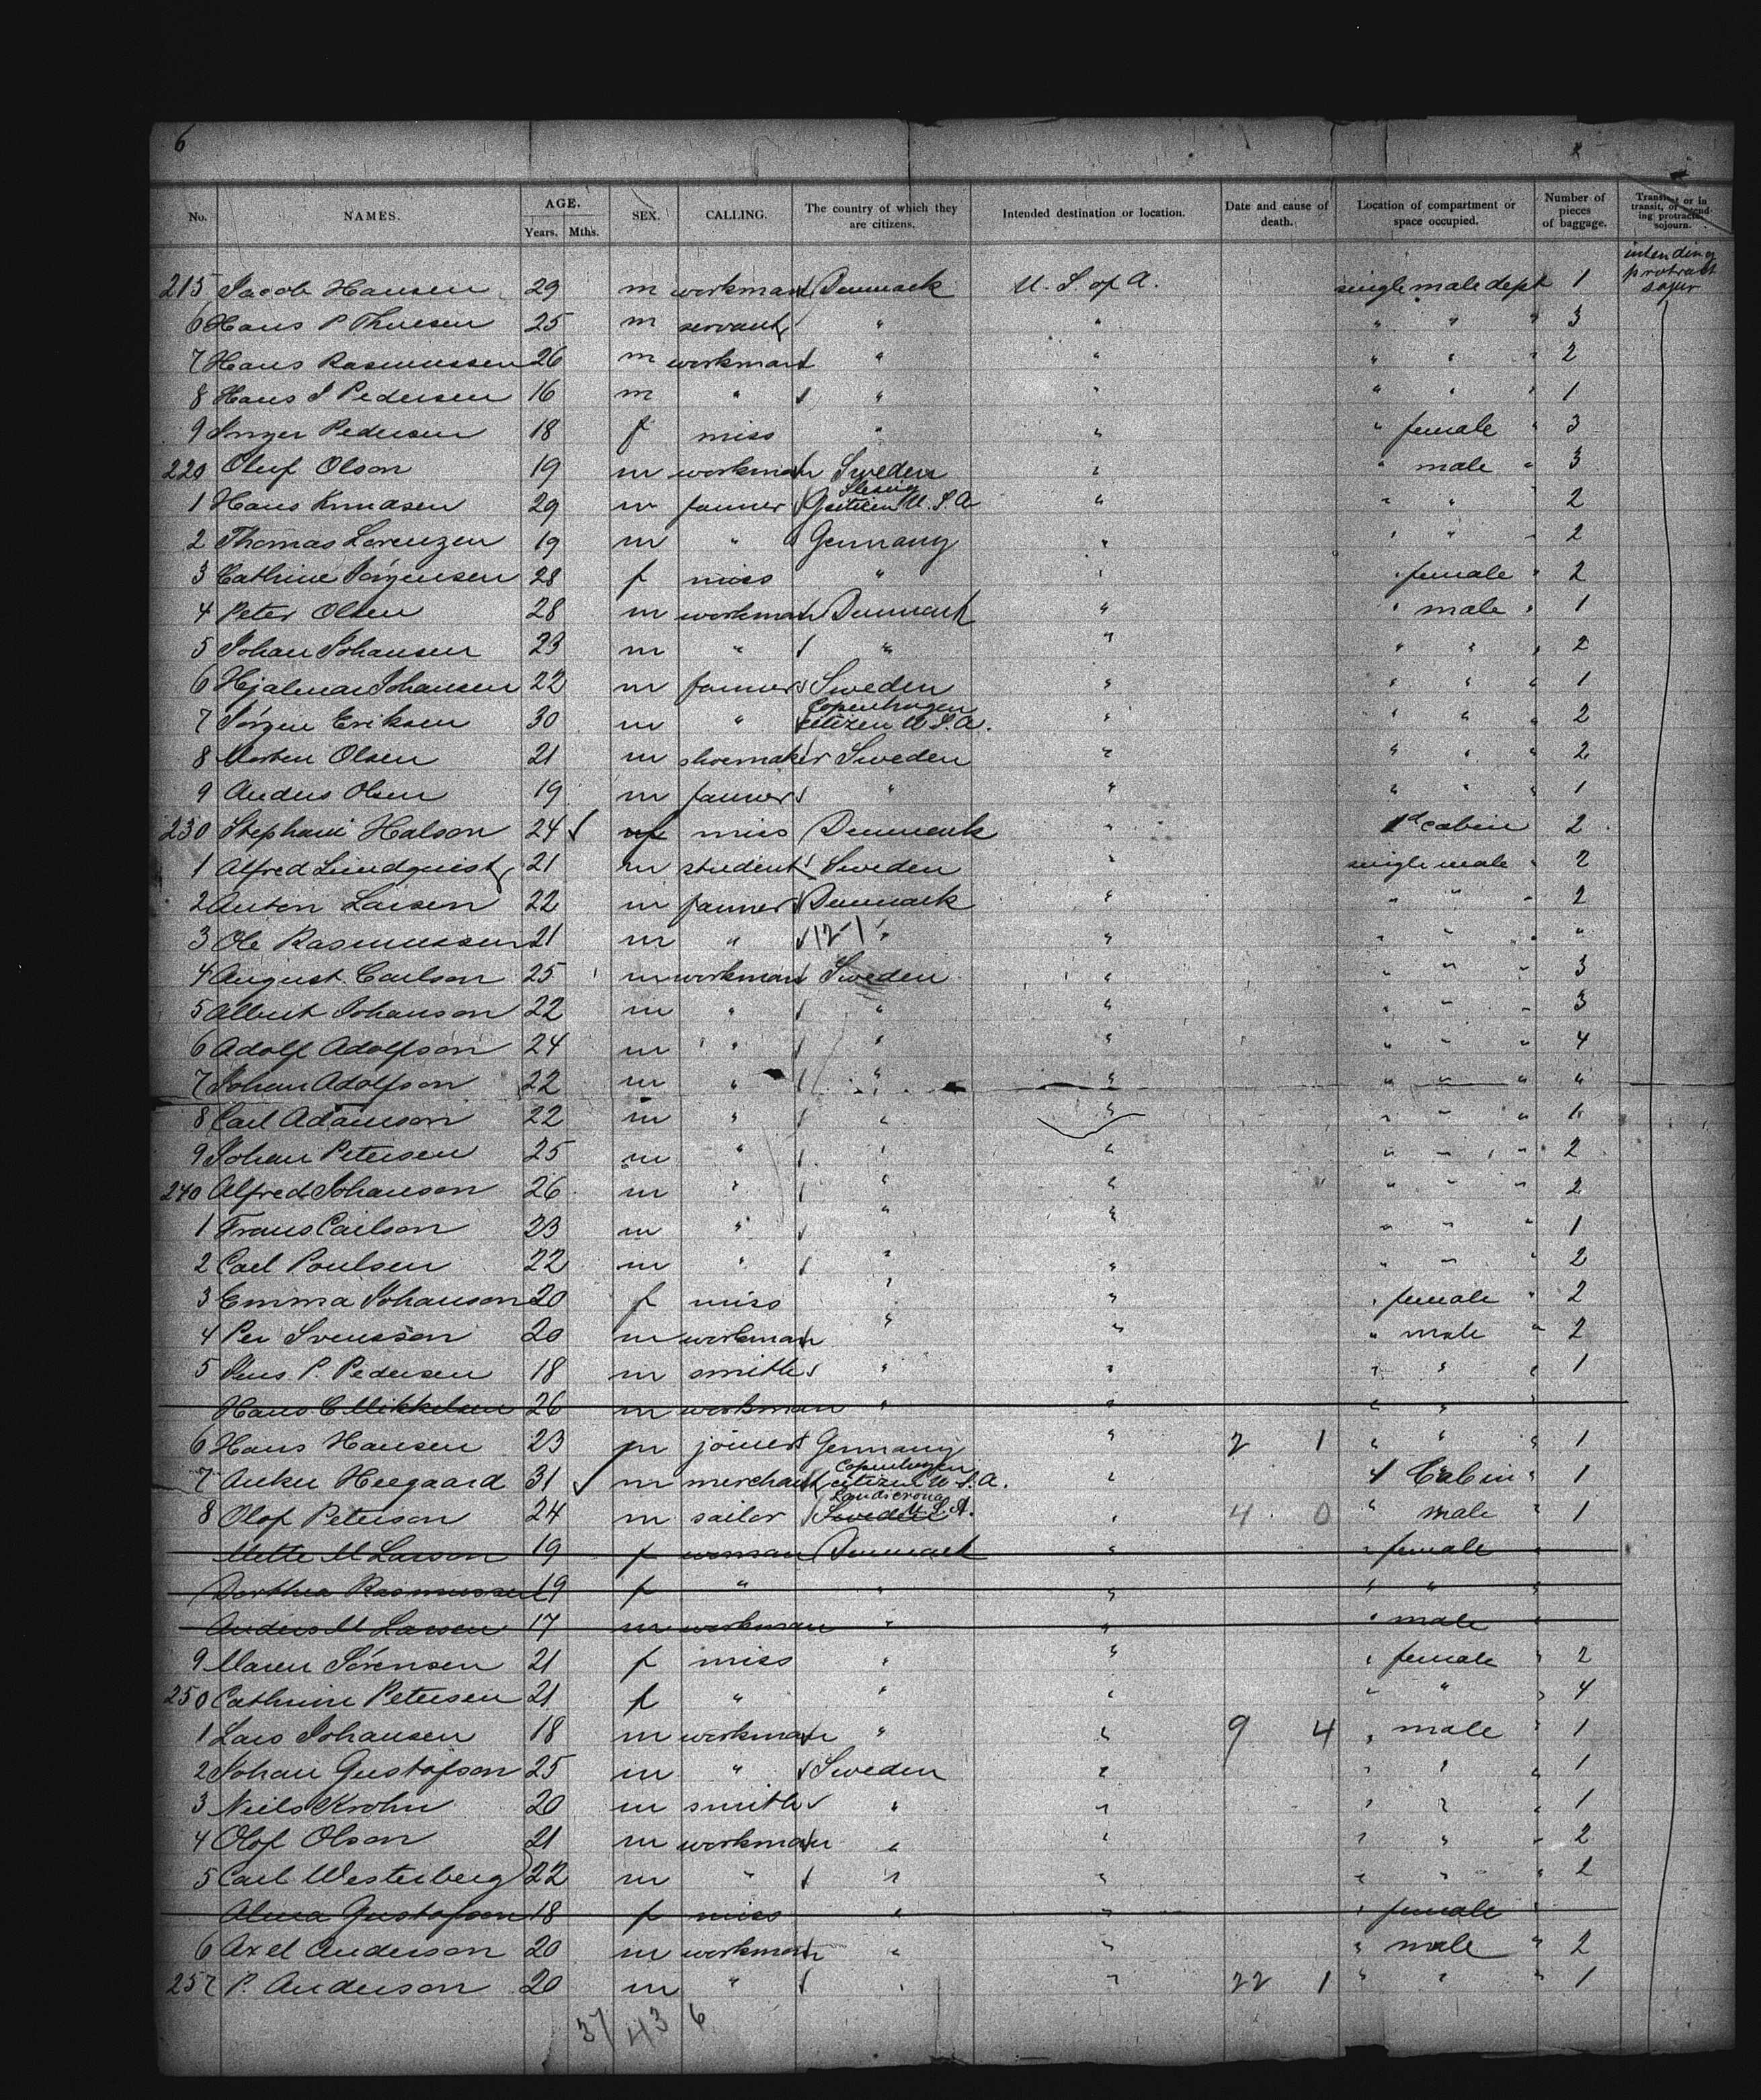 6
No. NAMES. AGE. Years. Mths. SEX. CALLING. The country of which they are citizens. Intended destination or location. Date and cause of death. Location of compartment or space occupied. Number of pieces of baggage. Transient or in transit, or intending protracted sojourn.
215 Jacob Hansen 29 m workman Denmark U. S. of A. single male dept 1 intending protract sojur
6 Hans P Thuesen 25 m servant " " " " " 3
7 Hans Rasmussen 26 m workman " " " " " 2
8 Hans J Pedersen 16 m " " " " " " 1
9 Inger Pedersen 18 f miss " " " female " 3
220 Oluf Olson 19 m workman Sweden " " male " 3
1 Hans Knudsen 29 m farmer Slesvig citizen U. S. A " " " " 2
2 Thomas Lorenzen 19 m " Germany " " " " 2
3 Cathrine Jörgensen 28 f miss " " " female " 2
4 Peter Olsen 28 m workman Denmark " " male " 1
5 Johan Johansen 23 m " " " " " " 2
6 Hjalmar Johansen 22 m farmer Sweden " " " " 1
7 Jörgen Eriksen 30 m " Copenhagen citizen U. S. A. " " " " 2
8 Morten Olsen 21 m shoemaker Sweden " " " " 2
9 Anders Olsen 19 m farmer " " " " " 1
230 Stephani Halson 24 f miss Denmark " cabin 2
1 Alfred Lindquist 21 m student Sweden " single male " 2
2 Anton Larsen 22 m farmer Denmark " " " " 2
3 Ole Rasmussen 21 m " 12-1 " " " " " "
4 August Carlson 25 m workman Sweden " " " " 3
5 Albert Johanson 22 m " " " " " " 3
6 Adolf Adolfson 24 m " " " " " " 4
7 Johan Adolfson 22 m " " " " " " "
8 Carl Adamson 22 m " " " " " " 1
9 Johan Petersen 25 m " " " " " " 2
240 Alfred Johanson 26 m " " " " " " 2
1 Frans Carlson 23 m " " " " " " 1
2 Carl Poulsen 22 m " " " " " " 2
3 Emma Johanson 20 f miss " " " female " 2
4 Per Svensson 20 m workman " " " male " 2
5 Jens P. Pedersen 18 m smith " " " " " 1
Hans C Mikkelsen 26 m workman " " " " "
6 Hans Hansen 23 m joiner Germany " 2 1 " " " 1
7 Anker Heegaard 31 m merchant Copenhagen citizen U. S. A. " 1 Cabin " 1
8 Olof Peterson 24 m sailor Landscrona Sweden U. S. A. " 4 0 " male " 1
Mette M Larson 19 f woman Denmark " " female "
Dorthea Rasmussen 19 f " " " " " "
Anders M Larsen 17 m workman " " " male "
9 Maren Sörensen 21 f miss " " " female " 2
250 Cathrine Petersen 21 f " " " " " " 4
1 Lars Johansen 18 m workman " " 9 4 " male " 1
2 Johan Gustafson 25 m " Sweden " " " " 1
3 Niels Krohn 20 m smith " " " " " 1
4 Olof Olson 21 m workman " " " " " 2
5 Carl Westerberg 22 m " " " " " " 2
Alma Gustafson 18 f miss " " " female "
6 Axel Anderson 20 m workman " " " male " 2
257 P. Anderson 20 m " " " 22 1 " " " 1
37 43 6